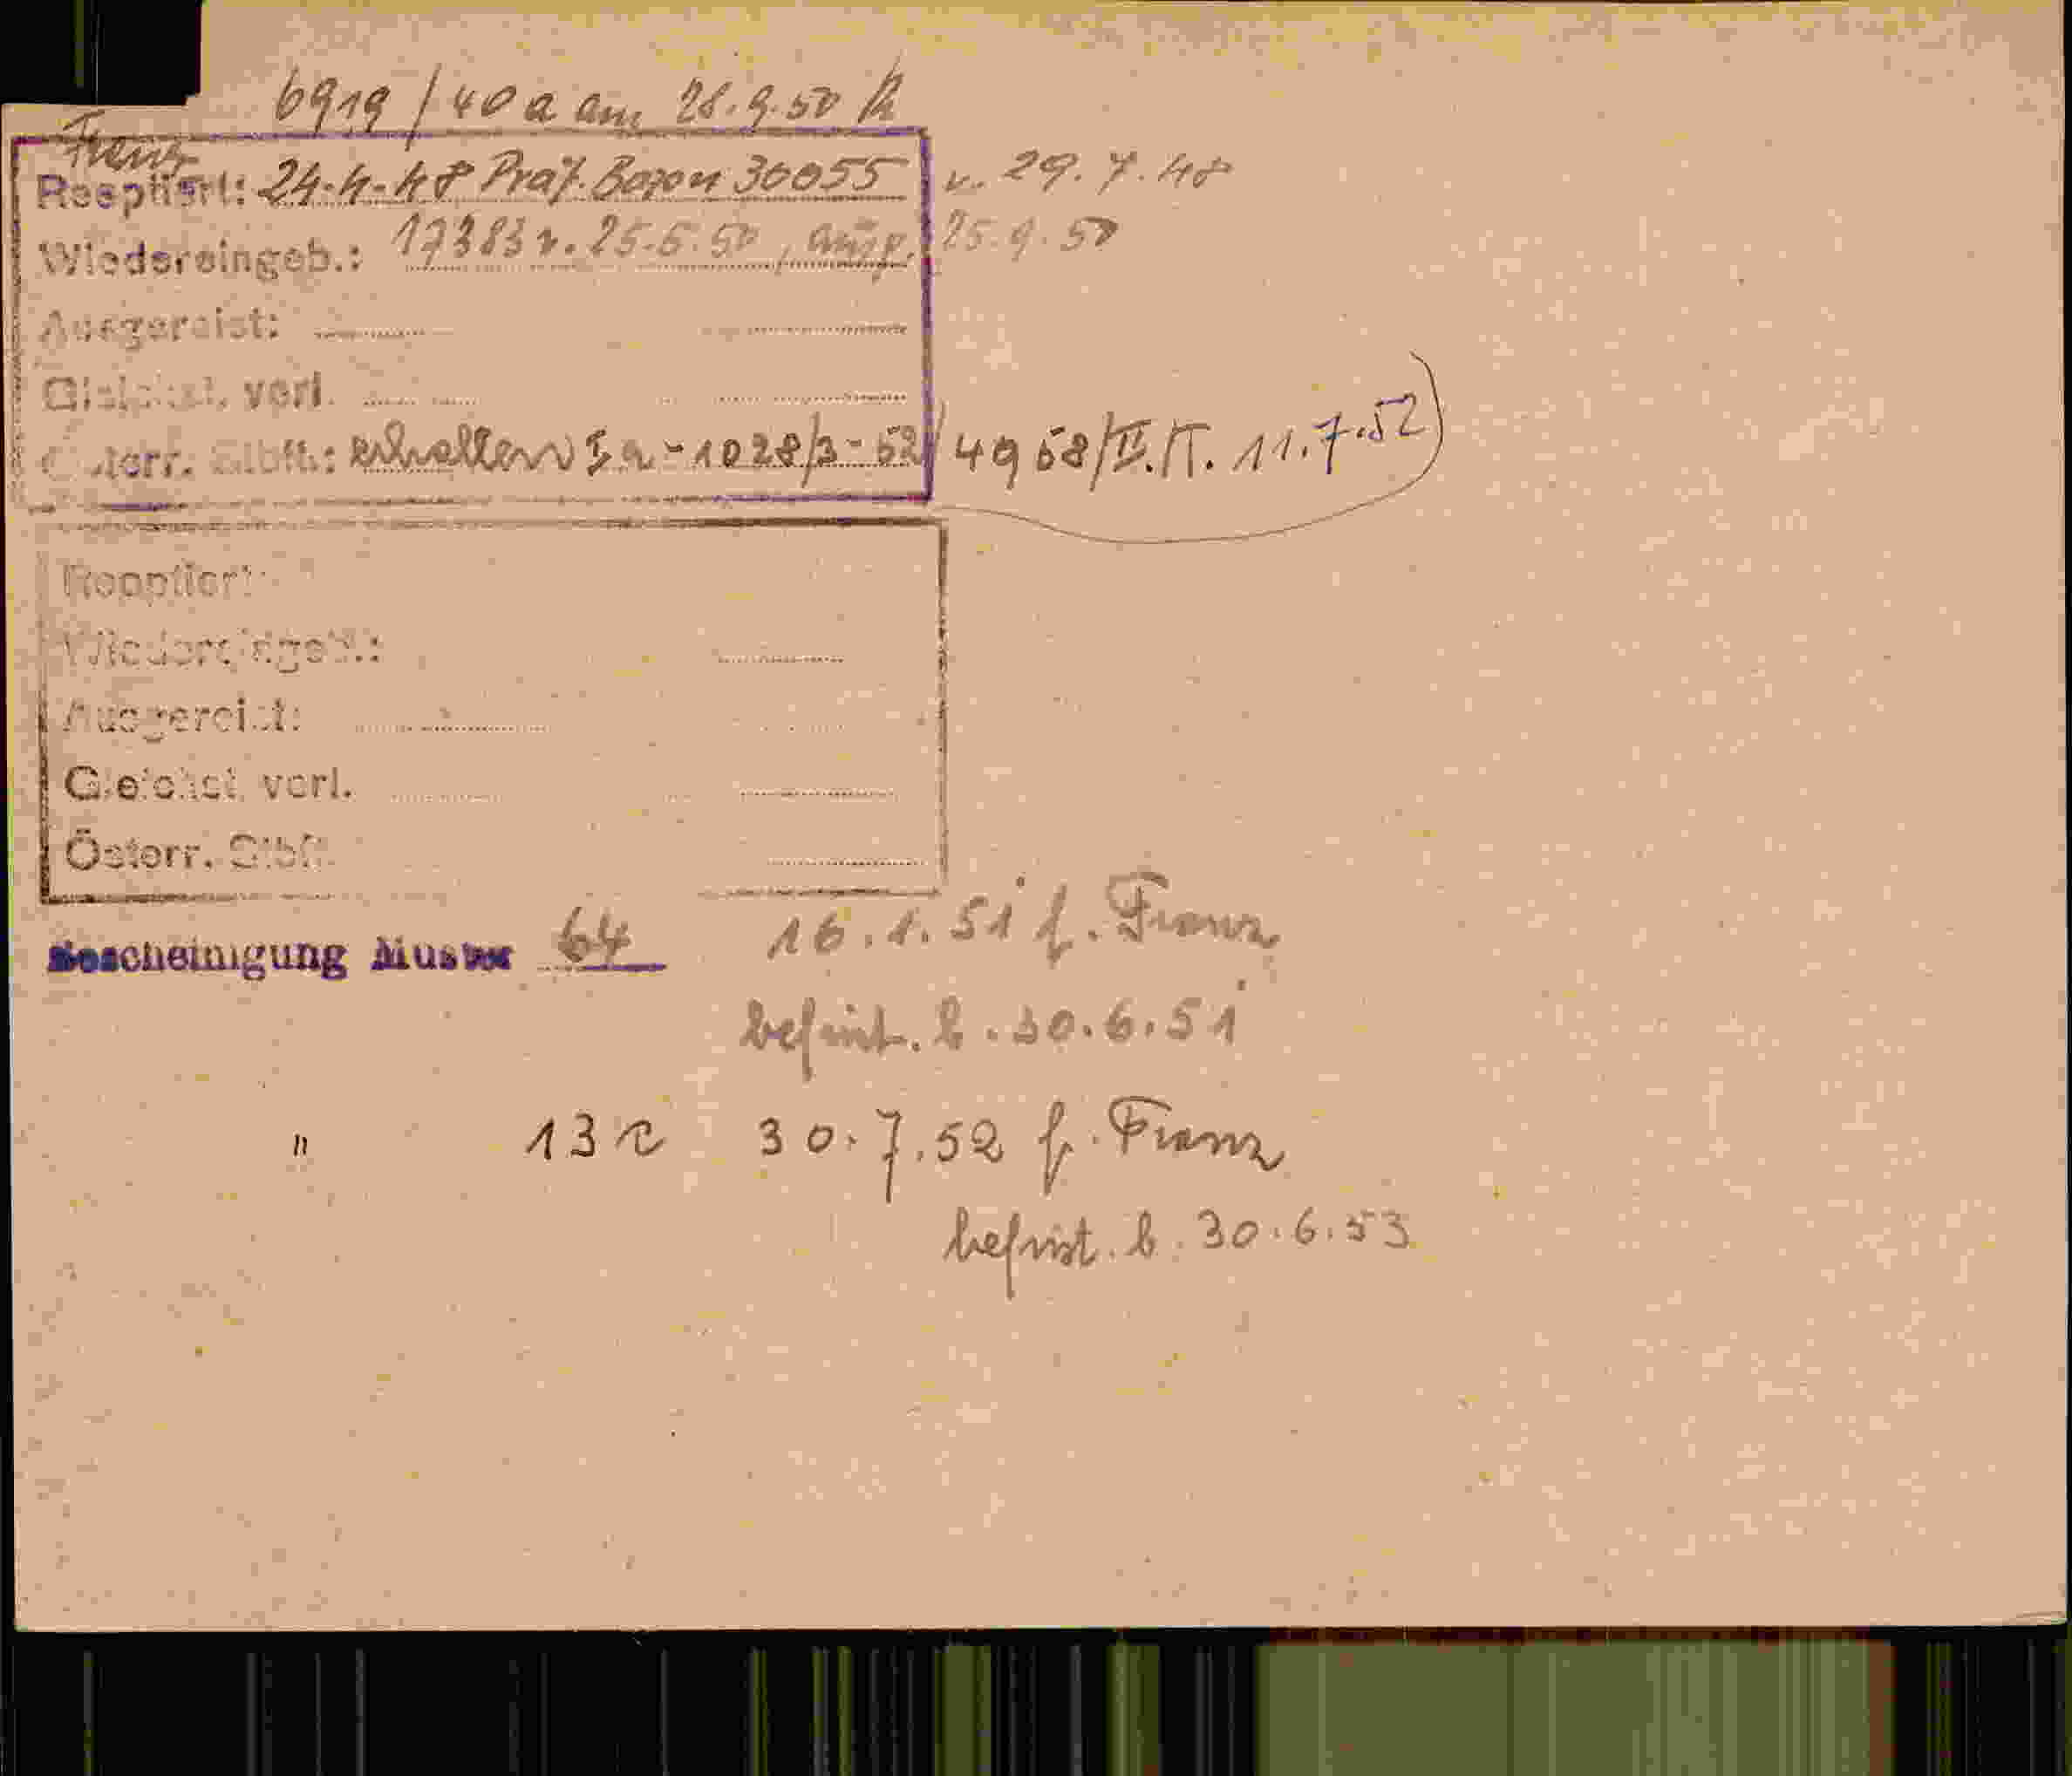 6919 / 40 a am 28.9.50
Franz
Reoptiert: 24.4.48 Präf. Bozen 30055 v. 29.7.48
Wiedereingeb.: 17383 v. 25.5.50, ausg. 25.9.50
Ausgereist:
Gleichst. verl.
Österr. Stbft.: erhalten Ia-1028/3-52/4958/II.IT. 11.7.52)
Reoptiert:
Wiedereingeb.:
Ausgereist:
Gleichst. verl.
Österr. Stbft.
Bescheinigung Muster 64 16.1.51 f. Franz
befrist. b. 30.6.51
" 13c 30.7.52 f. Franz
befrist. b. 30.6.53